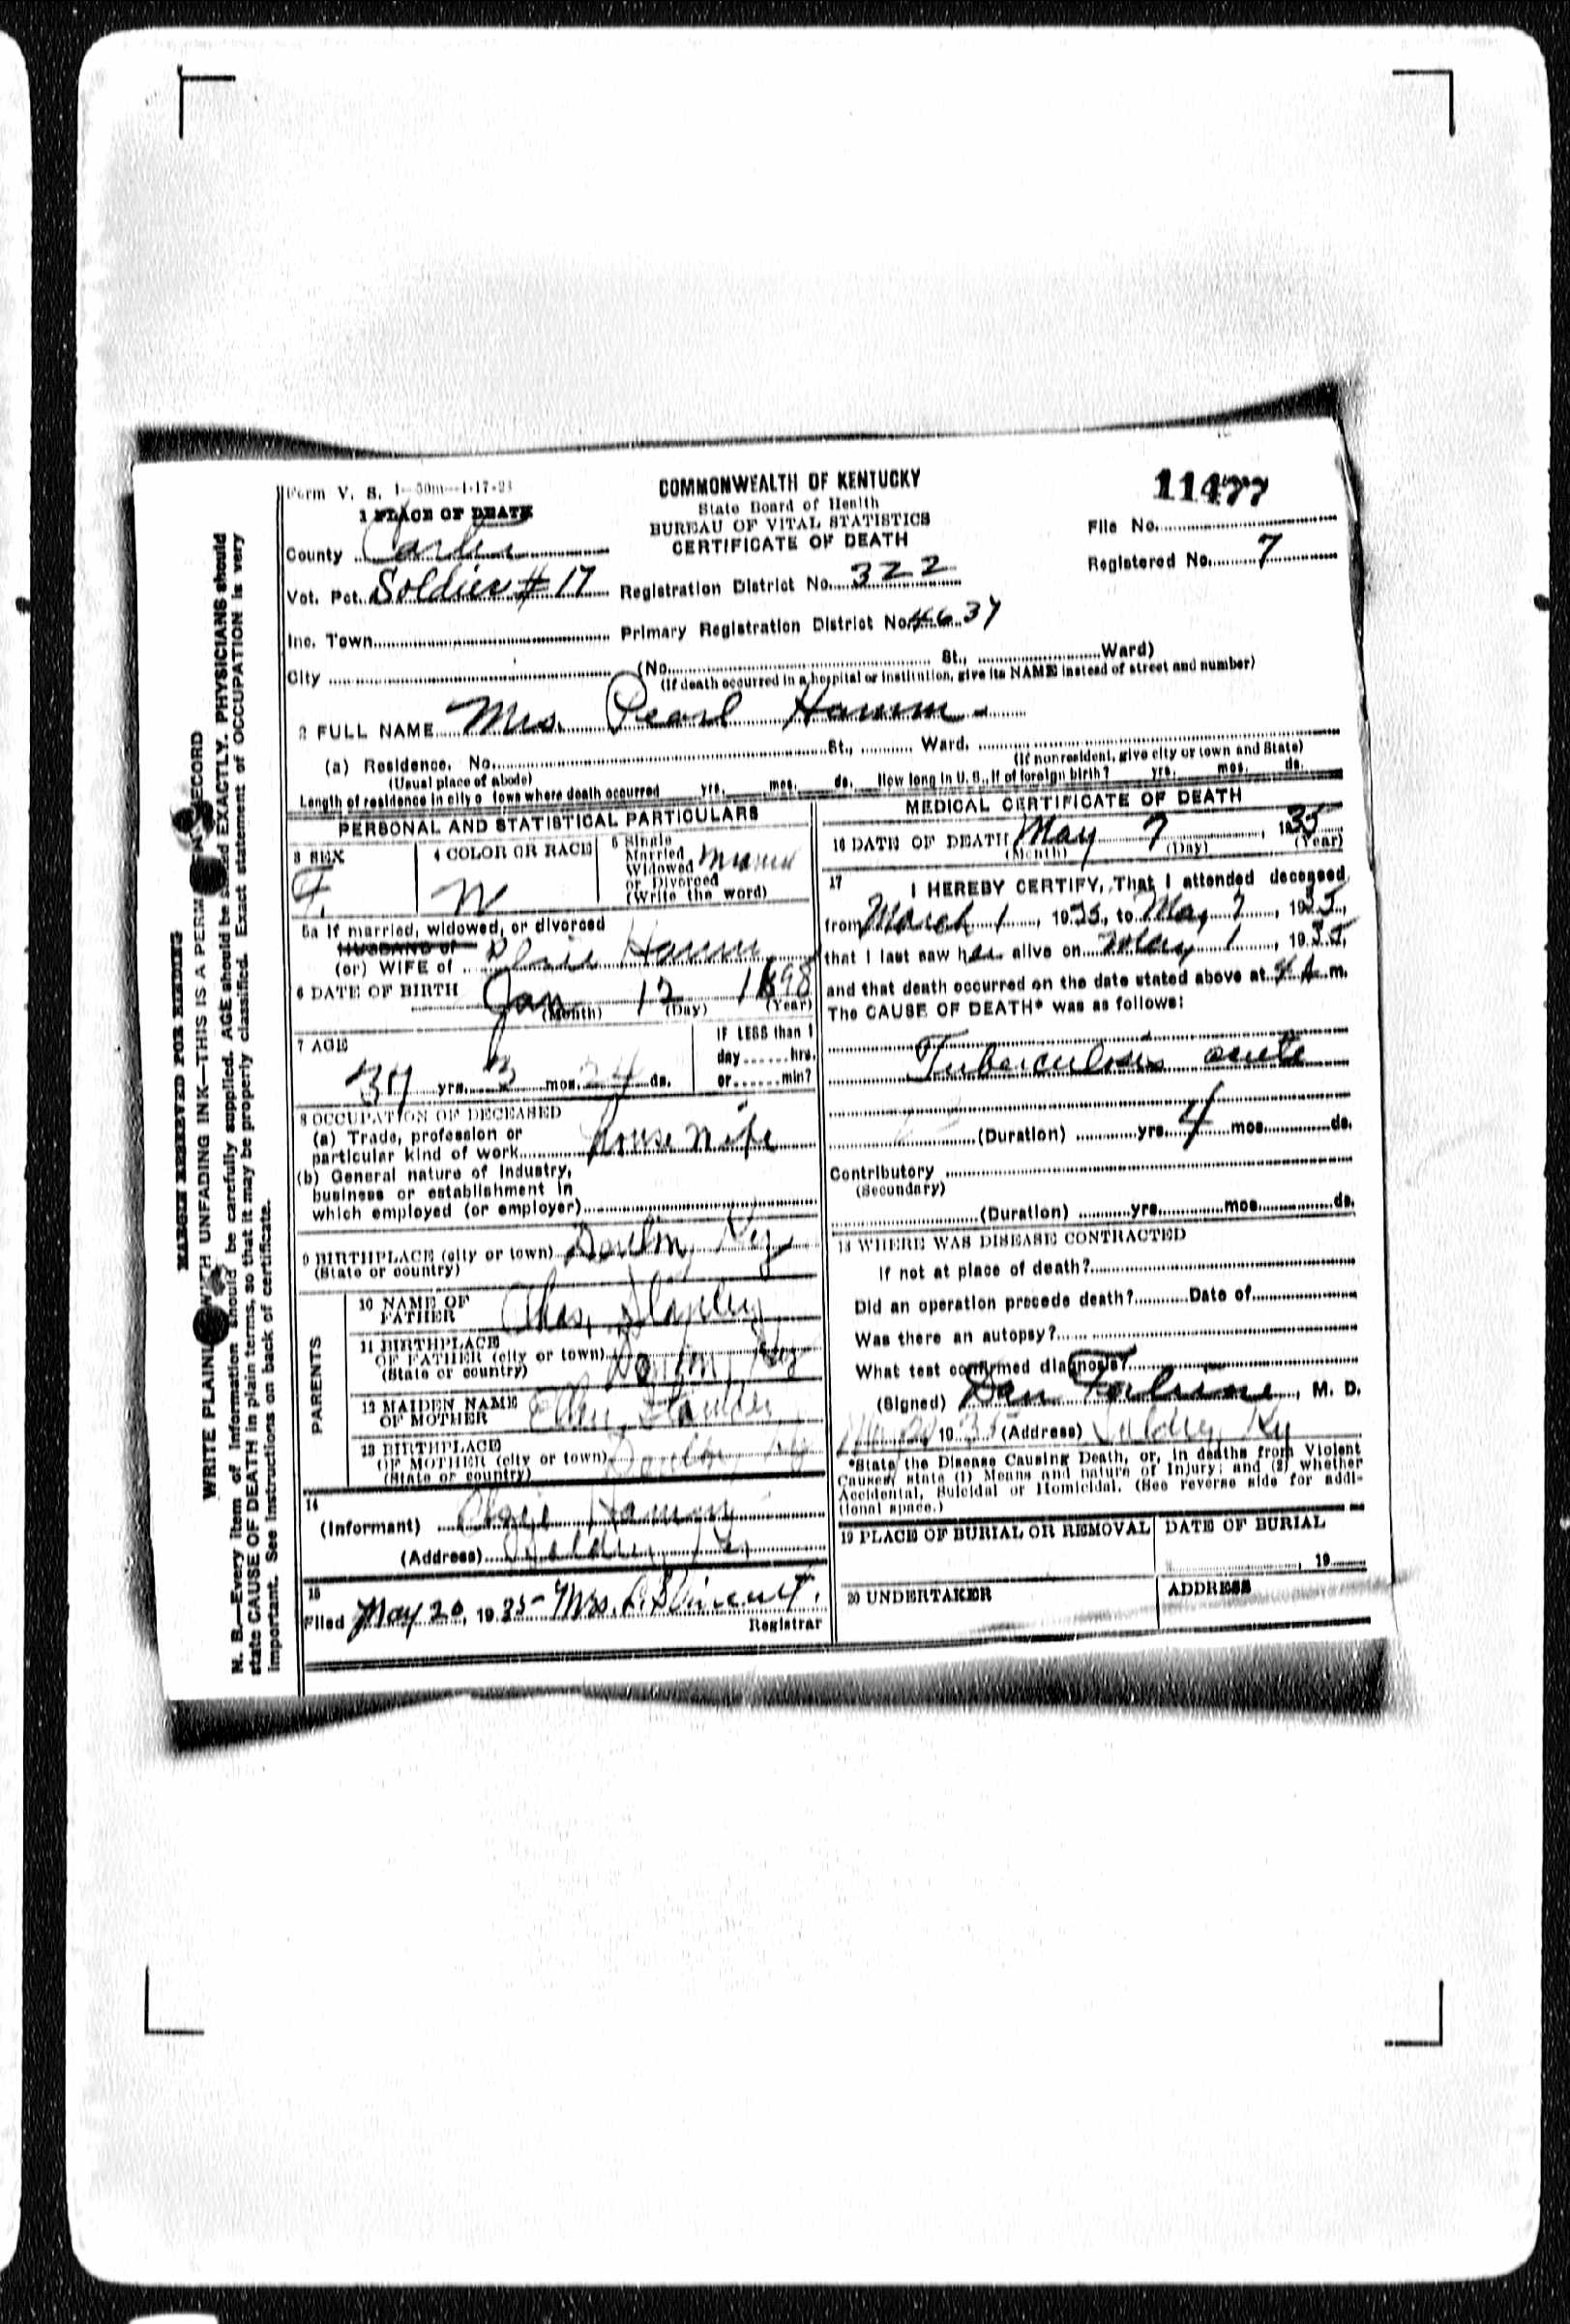 Form V. S. 1-50m-1-17-23
COMMONWEALTH OF KENTUCKY
State Board of Health
BUREAU OF VITAL STATISTICS
CERTIFICATE OF DEATH
11477
File No.
Registered No. 7
1 PLACE OF DEATH
County Carter
Vot. Pct. Soldier #17 Registration District No. 322
Inc. Town Primary Registration District No. 4637
City (No. St., Ward)
(If death occurred in a hospital or institution, give its NAME instead of street and number)
2 FULL NAME Mrs. Pearl Hamm
(a) Residence. No. St., Ward.
(Usual place of abode) (If nonresident, give city or town and State)
Length of residence in city o town where death occurred yrs. mos. ds. How long in U. S., if of foreign birth? yrs. mos. ds.
PERSONAL AND STATISTICAL PARTICULARS
3 SEX
F.
4 COLOR OR RACE
W
5 Single
Married
Widowed
or Divorced
(Write the word)
5a If married, widowed, or divorced
HUSBAND of
(or) WIFE of Hamm
6 DATE OF BIRTH Jan 12 1898
(Month) (Day) (Year)
7 AGE
37 yrs. 3 mos. 24 ds.
IF LESS than 1
day hrs.
or min?
8 OCCUPATION OF DECEASED
(a) Trade, profession or
particular kind of work house wife
(b) General nature of Industry,
business or establishment in
which employed (or employer)
9 BIRTHPLACE (city or town) Ky
(State or country)
PARENTS
10 NAME OF
FATHER Chas,
11 BIRTHPLACE
OF FATHER (city or town) Ky
(State or country)
12 MAIDEN NAME
OF MOTHER
13 BIRTHPLACE
OF MOTHER (city or town) Ky
(State or country)
14
(Informant)
(Address)
15
Filed May 20, 1935 Mrs.
Registrar
MEDICAL CERTIFICATE OF DEATH
16 DATE OF DEATH May 7, 1935
(Month) (Day) (Year)
17
I HEREBY CERTIFY, That I attended deceased
from March 1, 1935, to May 7, 1935,
that I last saw her alive on May 1, 1935,
and that death occurred on the date stated above at 4 A m.
The CAUSE OF DEATH* was as follows:
Tuberculosis acute
(Duration) yrs. 4 mos. ds.
Contributory
(Secondary)
(Duration) yrs. mos. ds.
18 WHERE WAS DISEASE CONTRACTED
If not at place of death?
Did an operation precede death? Date of
Was there an autopsy?
What test confirmed diagnosis?
(Signed) Dan, M. D.
1935 (Address) Ky
*State the Disease Causing Death, or, in deaths from Violent
Causes, state (1) Means and nature of Injury; and (2) whether
Accidental, Suicidal or Homicidal. (See reverse side for addi-
tional space.)
19 PLACE OF BURIAL OR REMOVAL
DATE OF BURIAL
, 19
20 UNDERTAKER
ADDRESS
MARGIN RESERVED FOR BINDING
WRITE PLAINL WITH UNFADING INK—THIS IS A PERM N RECORD
N. B.—Every item of information should be carefully supplied. AGE should be s d EXACTLY. PHYSICIANS should
state CAUSE OF DEATH in plain terms, so that it may be properly classified. Exact statement of OCCUPATION is very
important. See instructions on back of certificate.